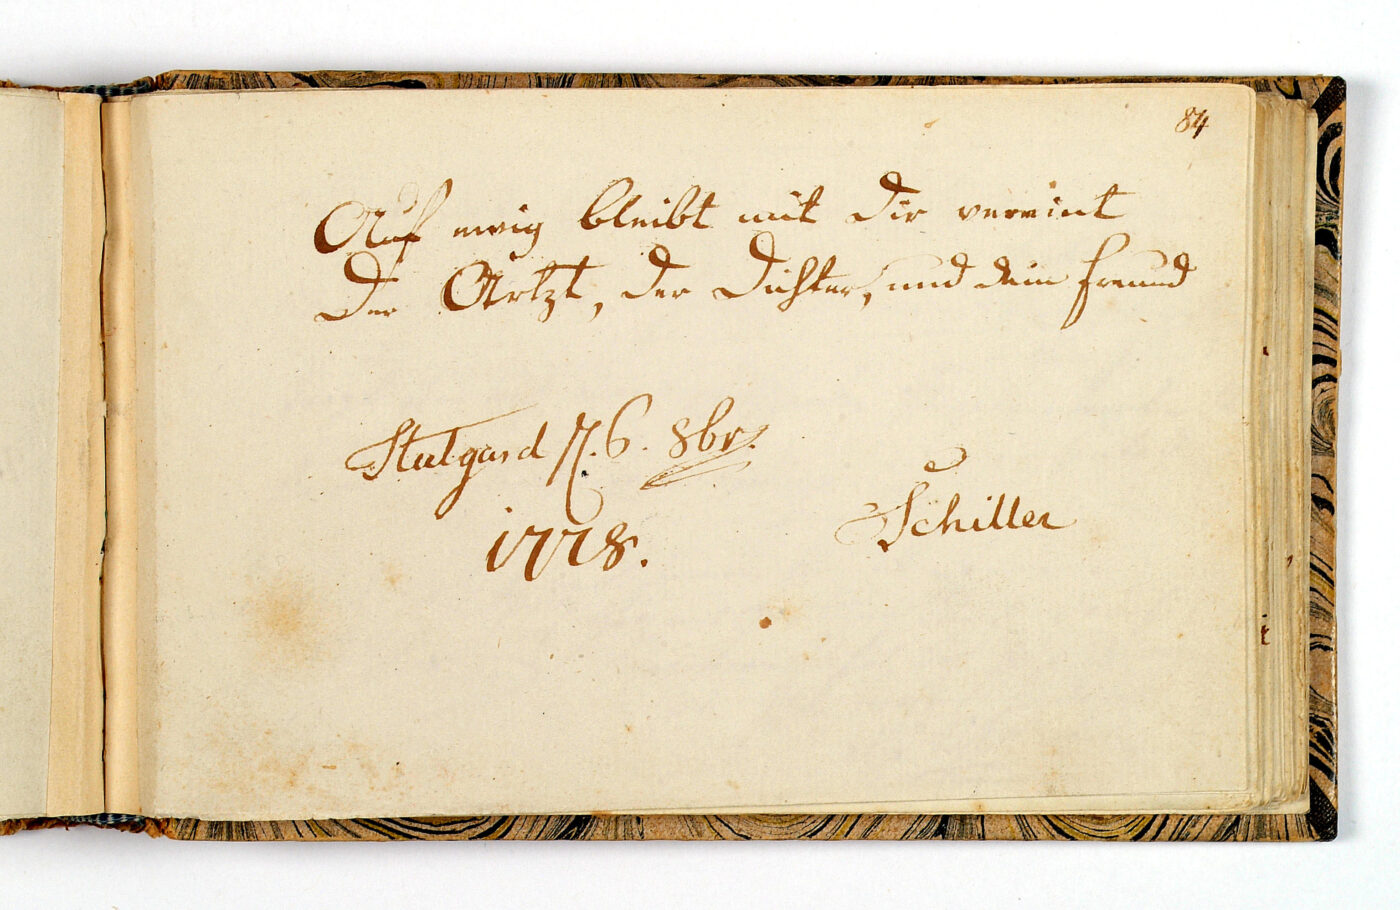 84
Auf ewig bleibt mit Dir vereint
Der Artzt, der Dichter, und dein Freund
Stutgard 6. 8br.
1778.
Schiller